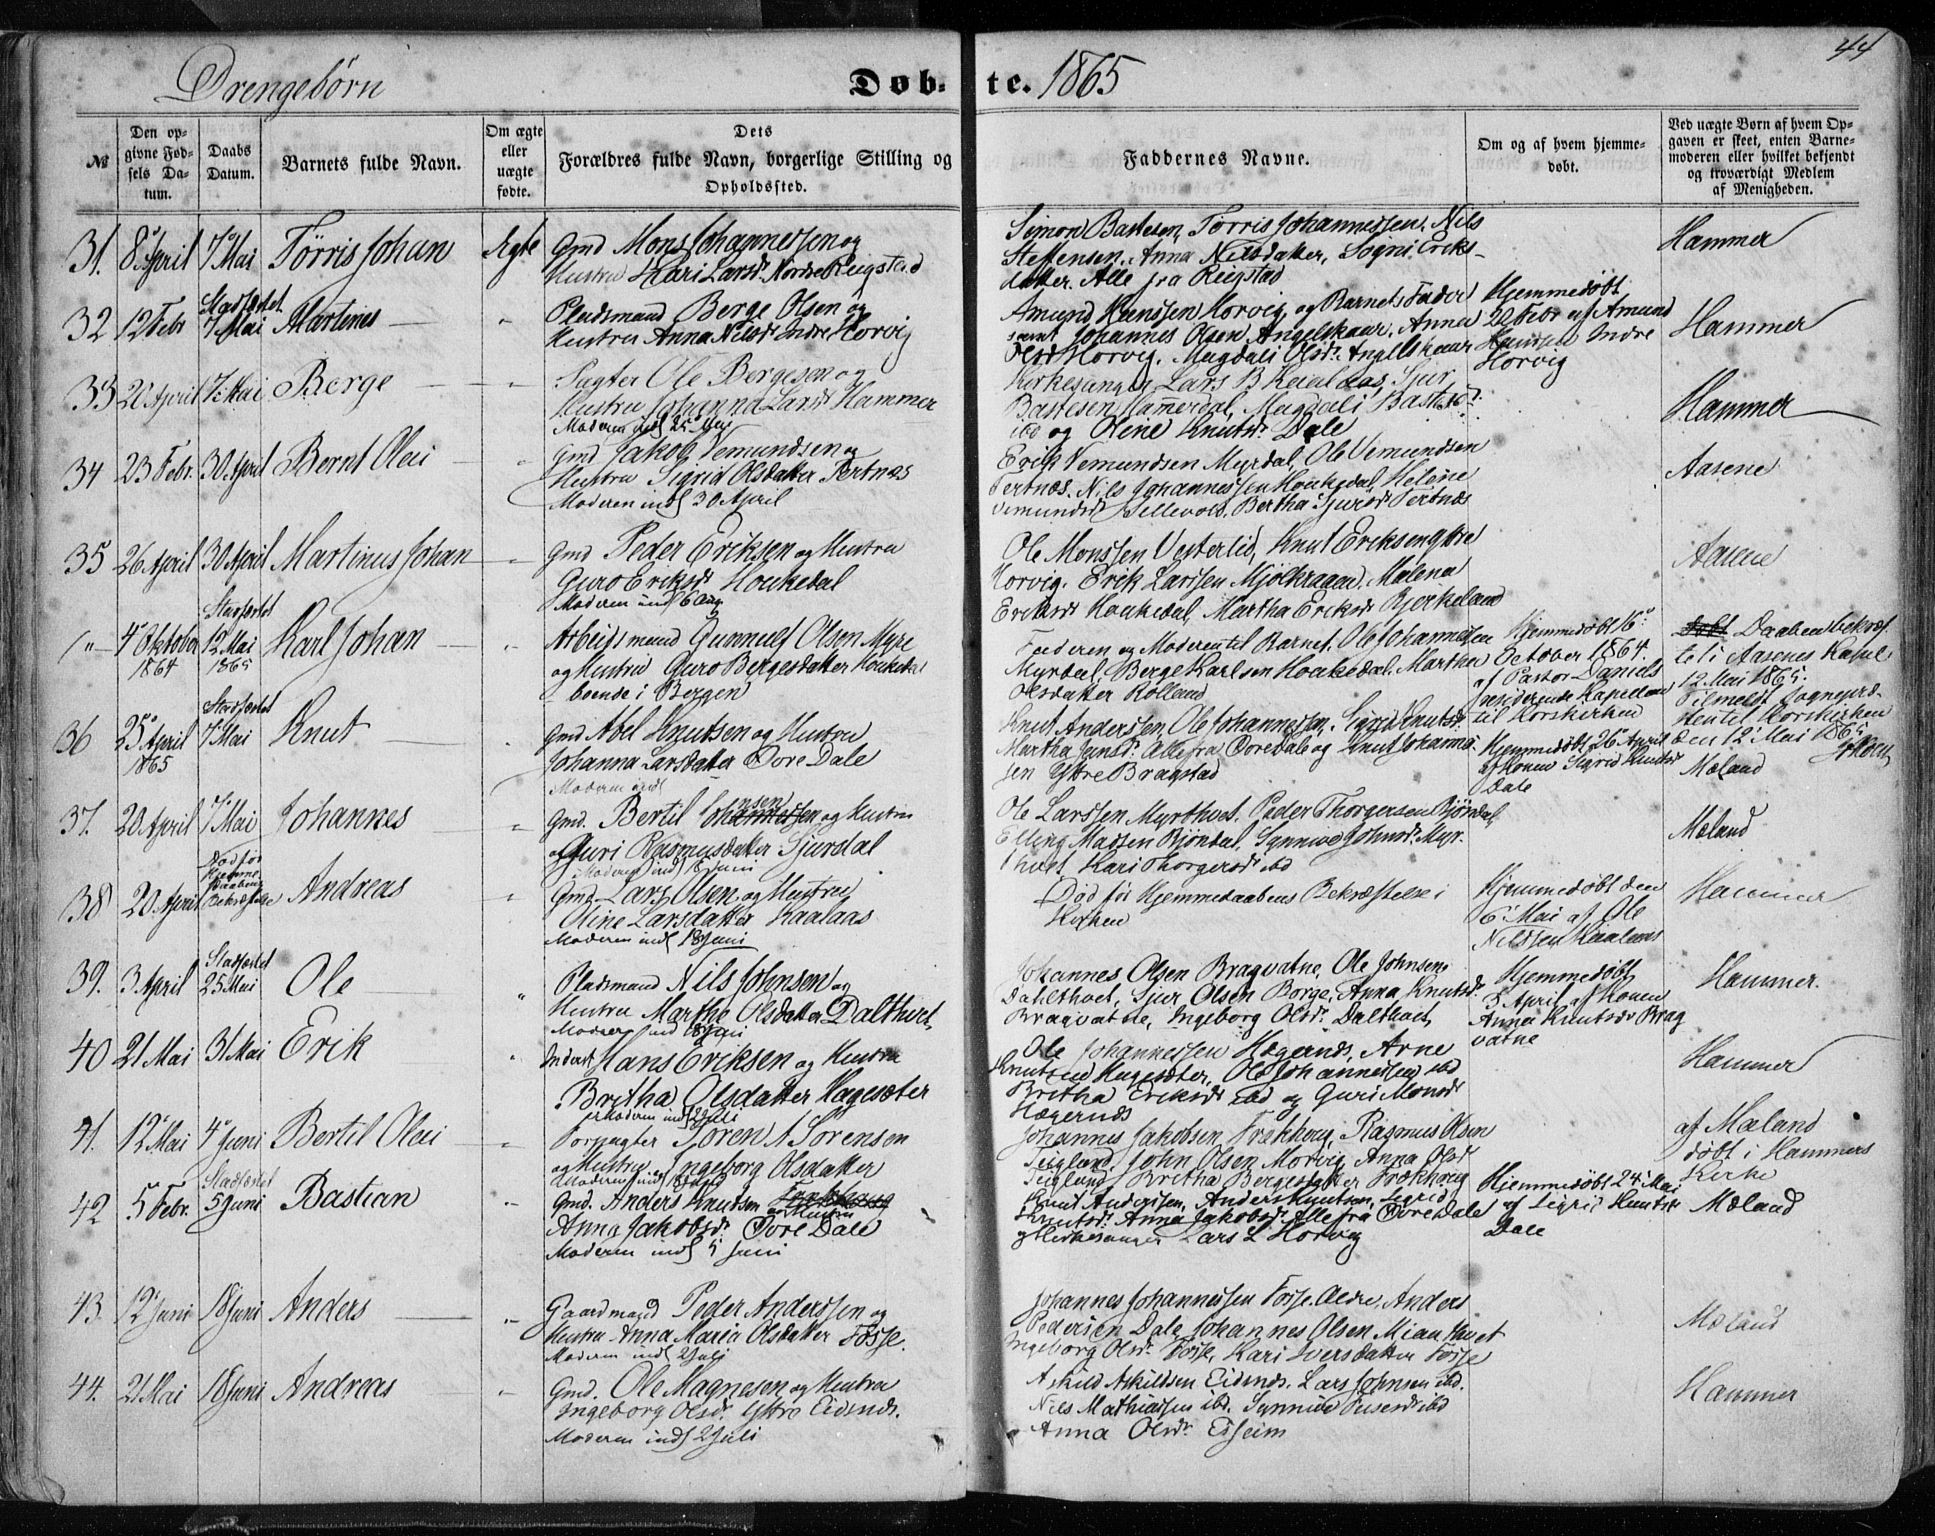 44
Drengebørn Døb- te. 1865
№
Den op-
givne Fød-
sels Da-
tum.
Daabs
Datum.
Barnets fulde Navn.
Om ægte
eller
uægte
fødte.
Dets
Forældres fulde Navn, borgerlige Stilling og
Opholdssted.
Faddernes Navne.
Om og af hvem hjemme-
døbt.
Ved uægte Børn af hvem Op-
gaven er skeet, enten Barne-
moderen eller hvilket bekjendt
og troværdigt Medlem
af Menigheden.
31. 8 April 7 Mai Tørris Johan Ægte
Gmd Mons Johannessen og
Hustru Kari Larsdr. Nordre Reigstad
Simon Bastesen, Tørris Johannessen, Nils
Steffensen, Anna Nilsdatter, Sogni Eriks-
datter. Alle fra Reigstad
Hammer
32 12 Febr Stadfæstet 7 Mai Martines "
Pladsmand Berge Olsen og
Hustru Anna Nilsdr Indre Horvig
Amund Hanssen Horvig og Barnets Fader
samt Johannes Olsen Angelskaar, Anna
Olsdr Horvig. Magdali Olsdr. Angelskaar
Hjemmedøbt
20 Febr af Amund
Hanssen Indre
Horvig
Hammer
33 20 April 7 Mai Berge "
Ole Bergesen og
Hustru Johanna Larsdr Hammer
Moderen indl 25 Mai
Kirkesanger Lars B Kaalaas, Sjur
Bastesen Hammerdal, Magdali Bastesdr.
ibd og Oline Knutsdr. Dale
Hammer
34 23 Febr. 30 April Bernt Olai "
Gmd Jakob Vemundsen og
Hustru Sigrid Olsdatter Tertnæs
Moderen indl 30 April
Erik Vemundsen Myrdal, Ole Vemundsen
Tertnæs. Nils Johannessen Houkedal, Helene
Vemundsdr Sellevold. Bertha Sjursdr Tertnæs
Aasene
35 26 April 30 April Martinus Johan "
Gmd. Peder Eriksen og Hustru
Guro Eriksdr Houkedal
Moderen indl 6 Aug
Ole Monssen Vesterlid, Knut Eriksen Ytre
Horvig. Erik Larssen Mjølkraaen, Malena
Eriksdr Houkedal, Martha Eriksdr Bjerkeland
Aasene
" 4 Oktober 1864 Stadfæstet 12 Mai 1865 Karl Johan "
Arbeidsmand Gunnulf Olsen Myre
og Hustru Guro Bergesdatter Houkedal
boende i Bergen
Faderen og Moderen til Barnet. Ole Johannessen
Myrdal, Berge Karlsen Houkedal. Martha
Olsdatter Rolland
Hjemmedøbt 16
October 1864.
af Pastor Daniels
residerende Kapellan
til Korskirken
Døbt Daaben bekræf-
tet i Aasenes Kapel
12 Mai 1865.
Tilmeldt Sognepræ-
sten til Korskirken
den 12 Mai 1865
36 25 April 1865 Stadfæstet 7 Mai Knut "
Gmd. Abel Knutsen og Hustru
Johanna Larsdatter Øvre Dale
Moderen indl
Knut Anderssen, Ole Johannessen, Sigrid Knutsdr.
Martha Jansdr. Alle fra Øvre Dale og Knut Johannes-
sen Ytre Bragstad
Hjemmedøbt 26 April
af Konen Sigrid Knutsdr
Dale
Mæland
37. 20 April 7 Mai Johannes "
Gmd. Bertil Johannessen nsen og Hustru
Guri Rasmusdatter Sjurstal
Moderen indl 18 Juni
Ole Larssen Myrthvet. Peder Thorgersen Bjøndal,
Elling Madsen Bjøndal, Synnive Johnsdr Myr-
thvet, Kari Thorgersdr ibd
Mæland
38 20 April Død før Hjemme-
Daabens
Bekræftelse Andreas "
Gmd. Lars Olsen og Hustru
Oline Larsdatter Kaalaas
Moderen indl 18 Juni
Død før Hjemmedaabens Bekræftelse i
Kirken
Hjemmedøbt den
6 Mai af Ole
Nilssen Kaalaas
Hammer
39. 3 April Stadfæstet 25 Mai Ole "
Pladsmand Nils Johnsen og
Hustru Marthe Olsdatter Dalthvet
Moderen indl 18 Juni
Johannes Olsen Bragvatne, Ole Johnsen
Dalethvet, Sjur Olsen Borge, Anna Knutsdr.
Bragvatne, Ingeborg Olsdr. Dalthvet
Hjemmedøbt
5 April af Konen
Anna Knutsdr Brag
vatne
Hammer.
40 21 Mai 31 Mai Erik "
Inderst Hans Eriksen og Hustru
Britha Olsdatter Hagesæter
Moderen indl 2 Juli
Ole Johannessen Hægernæs, Arne
Knutsen Hagesæter, Ole Johannessen ibd
Britha Eriksdr ibd og Guri Monsdr
Hægernæs
Hammer
41. 12 Mai 4 Juni Bertil Olai "
Forpagter Søren A Sørensen
og Hustru Ingeborg Olsdatter
Johannes Jakobsen Frøkhoug, Rasmus Olsen
Teigland, John Olsen Morvig, Anna Olsdr
Teigland, Britha Bergesdatter Frøkhoug
af Mæland
døbt i Hammers
Kirke
42 5 Febr. Stadfæstet 5 Juni Bastian "
Gmd. Anders Knutsen og Hustru
Anna Jakobsdr. Øvre Dale
Moderen indl 5 Juni
Knut Anderssen, Anders Knutsen, Sigrid
Knutsdr. Anna Jakobsdr Alle fra Øvre Dale
og Kirkesanger Lars L Horvig
Hjemmedøbt 24 Mai
af Sigrid Knutsdr
Dale
Mæland
43. 12 Juni 18 Juni Anders "
Gaardmand Peder Anderssen og
Hustru Anna Maria Olsdatter Fosse.
Moderen indl 2 Juli
Johannes Johannessen Fosse, Anders
Pedersen Dale, Johannes Olsen
Ingeborg Olsdr. Fosse, Kari Iversdatter Fosse
Mæland
44. 21 Mai 18 Juni Andreas "
Gmd. Ole Magnesen og Hustru
Ingeborg Olsdr. Ytre Eidsnæs.
Moderen indl 2 Juli
Askild Askildsen Eidsnæs. Lars Johnsen ibd.
Nils Mathiassen ibd. Synnive ibd
Anna Olsdr.
Hammer